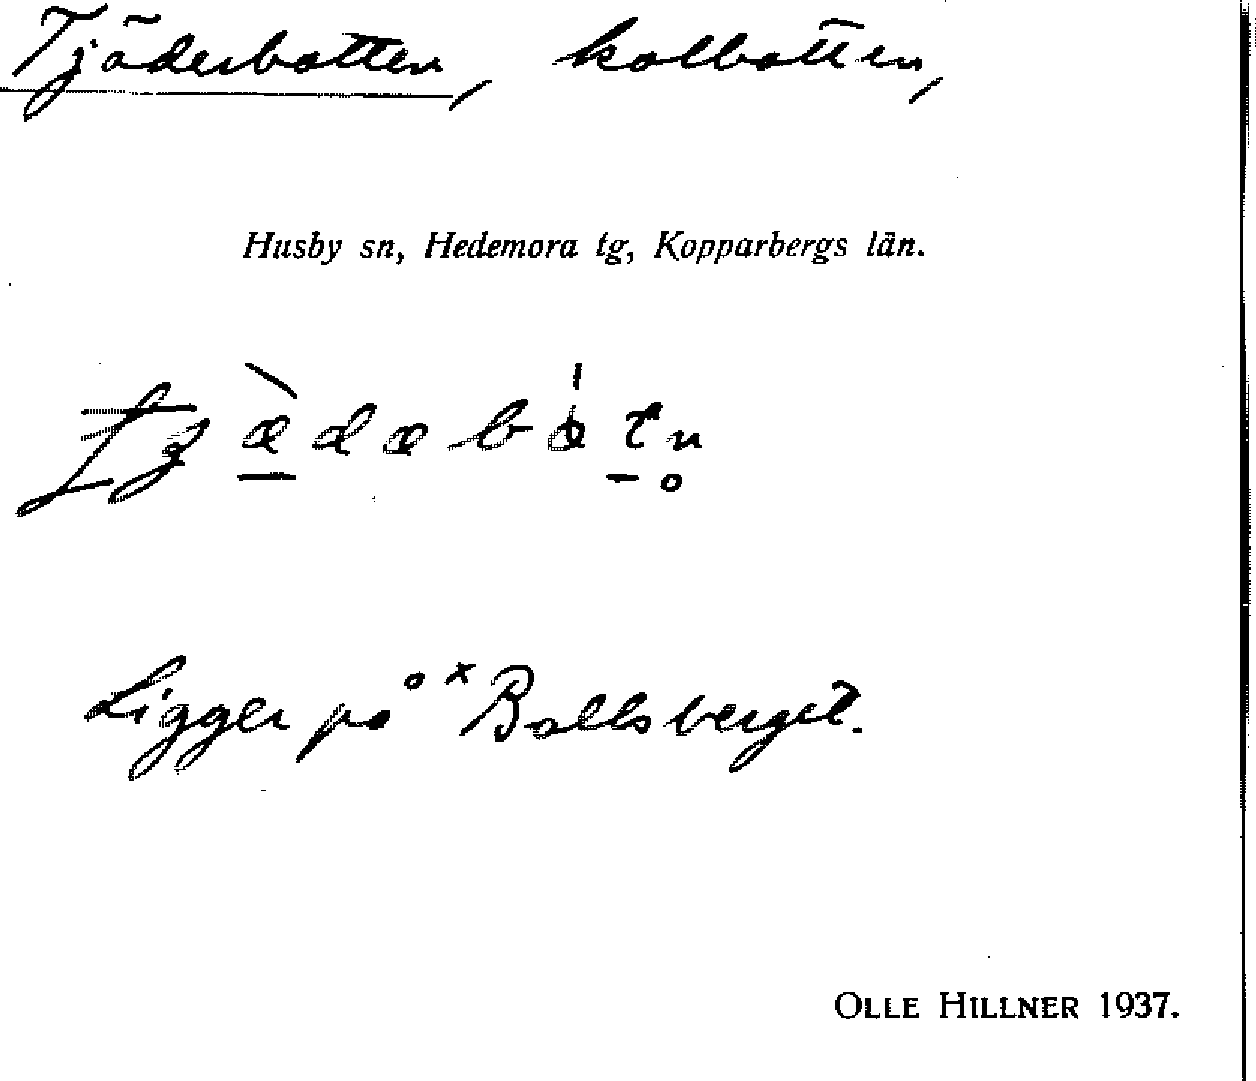 Tjäderbotten, kolbotten,
Husby sn, Hedemora tg, Kopparbergs län.
Ligger på ˣBollsberget.
OLLE HILLNER 1937.